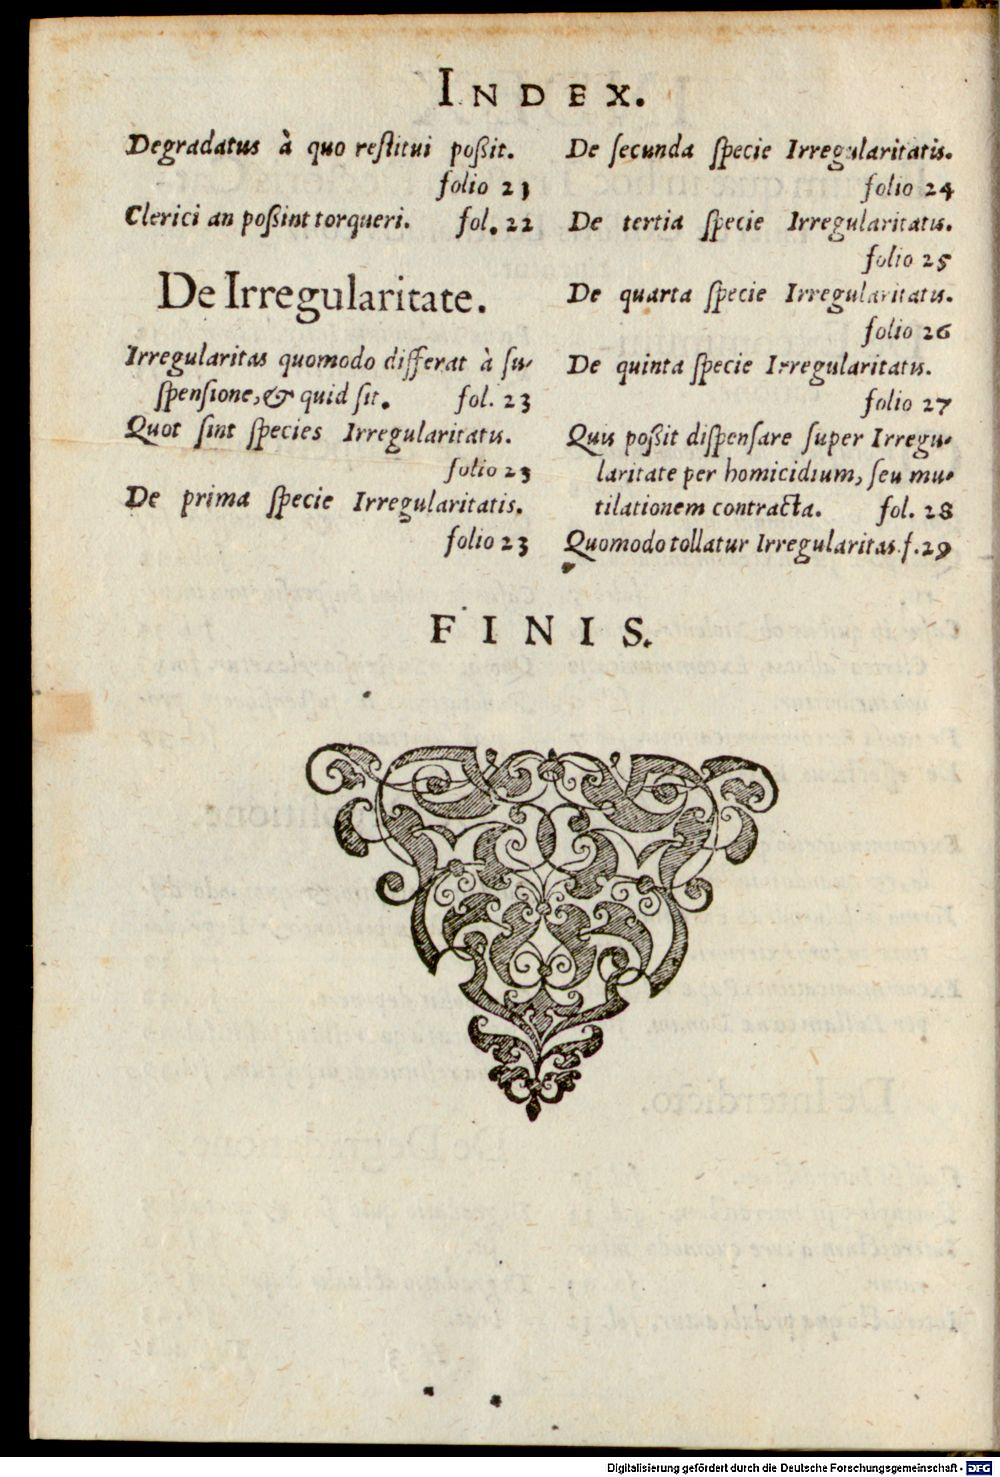 INDEX.
Degradatus à quo restitui poßit.
folio 23
Clerici an poßint torqueri. fol. 22
De Irregularitate.
Irregularitas quomodo differat à su-
spensione, & quid sit. fol. 23
Quot sint species Irregularitatis.
folio 23
De prima specie Irregularitatis.
folio 23
De secunda specie Irregularitatis.
folio 24
De tertia specie Irregularitatis.
folio 25
De quarta specie Irregularitatis.
folio 26
De quinta specie Irregularitatis.
folio 27
Quis poßit dispensare super Irregu-
laritate per homicidium, seu mu-
tilationem contracta. fol. 28
Quomodo tollatur Irregularitas. f. 29
FINIS.
Digitalisierung gefördert durch die Deutsche Forschungsgemeinschaft - DFG